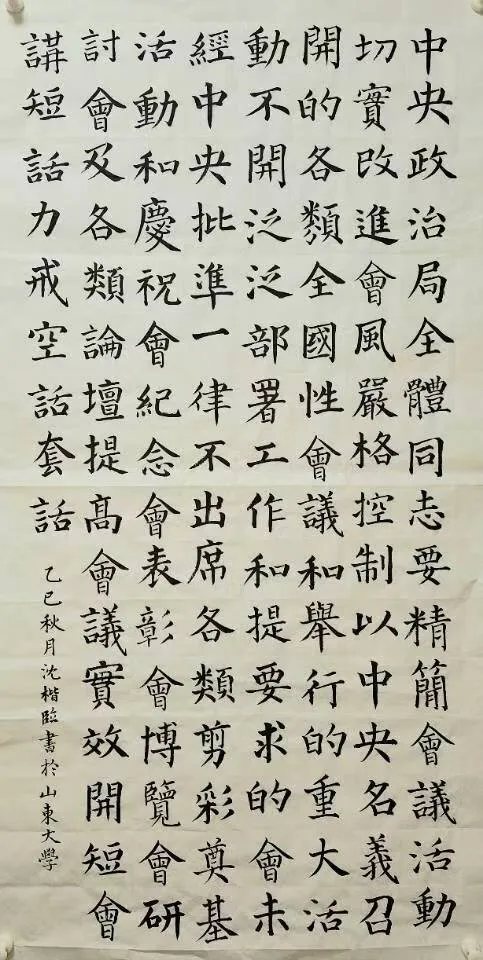 中央政治局全體同志要精簡會議活動
切實改進會風嚴格控制以中央名義召
開的各類全國性會議和舉行的重大活
動不開泛泛部署工作和提要求的會未
經中央批準一律不出席各類剪彩奠基
活動和慶祝會紀念會表彰會博覽會研
討會及各類論壇提高會議實效開短會
講短話力戒空話套話
乙巳秋月沈楷臨書於山東大學